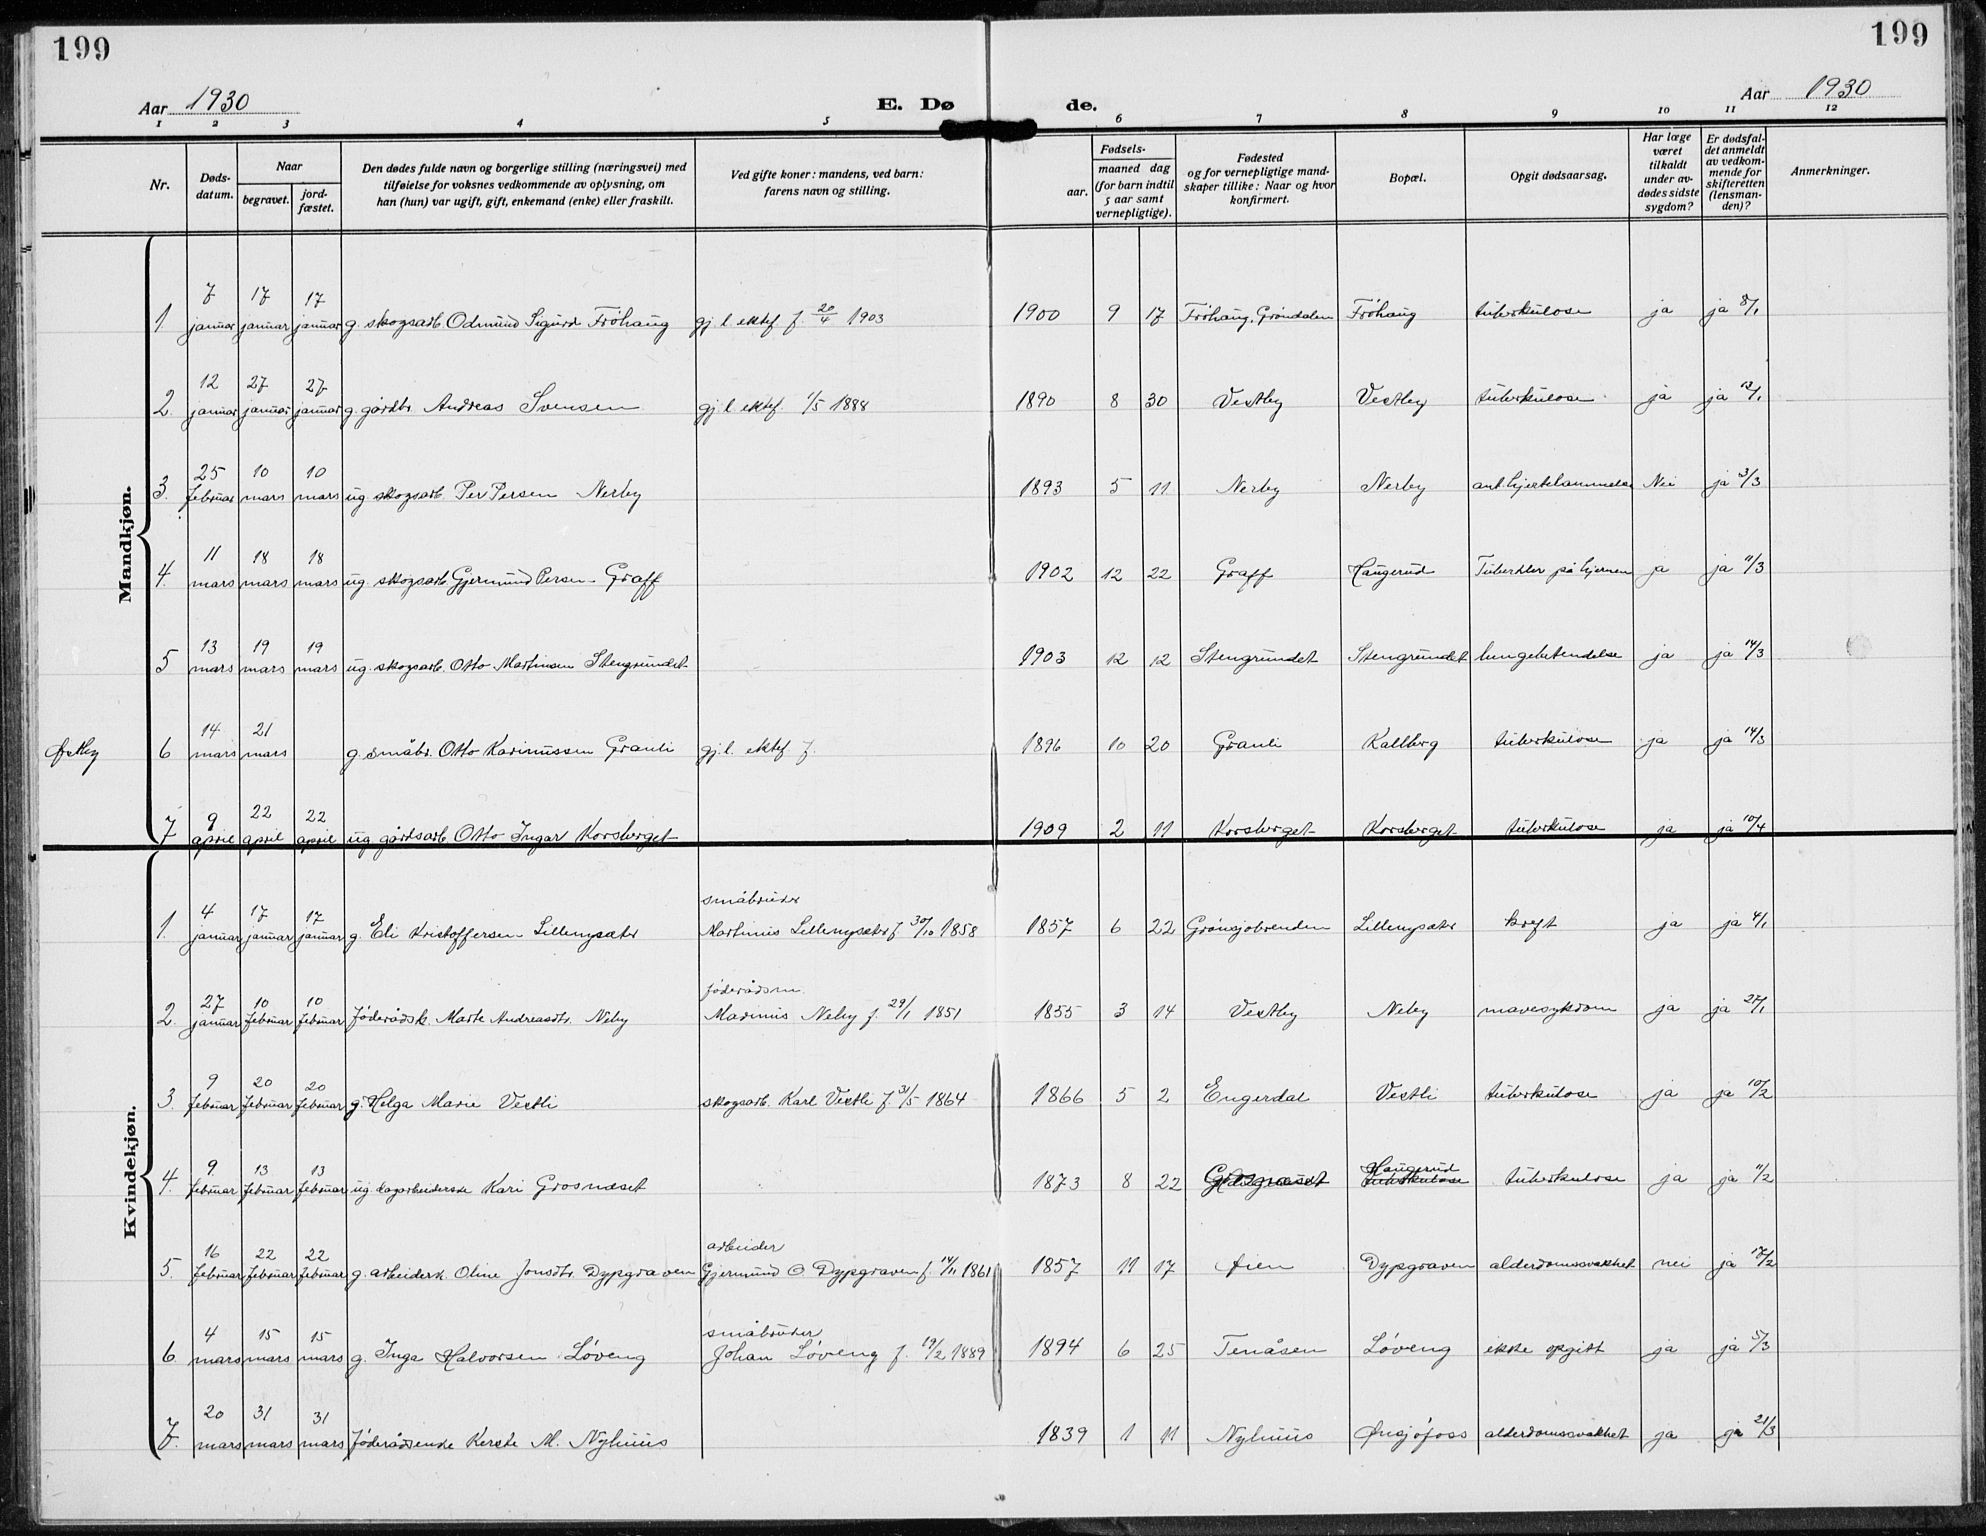 199
199
Aar 1930
E. Dø
de.
Aar 1930
1 2 3 4 5 6 7 8 9 10 11 12
Nr.
Døds-
datum.
Naar
begravet.
jord-
fæstet.
Den dødes fulde navn og borgerlige stilling (næringsvei) med
tilføielse for voksnes vedkommende av oplysning, om
han (hun) var ugift, gift, enkemand (enke) eller fraskilt.
Ved gifte koner: mandens, ved barn:
farens navn og stilling.
Fødsels-
aar.
maaned dag
(for barn indtil
5 aar samt
vernepligtige).
Fødested
og for vernepligtige mand-
skaper tillike: Naar og hvor
konfirmert.
Bopæl.
Opgit dødsaarsag.
Har læge
været
tilkaldt
under av-
dødes sidste
sygdom?
Er dødsfal-
det anmeldt
av vedkom-
mende for
skifteretten
(lensman-
den)?
Anmerkninger.
Mandkjøn.
7 17 17
1 januar januar januar g. skogsarb. Odmund Sigurd Fröhaug gj l. ektef f. 20/4 1903 1900 9 17 Fröhaug, Gröndalen Fröhaug tuberkulose ja ja 8/1
12 27 27
2. januar januar januar g. gårdbr. Andreas Svensen gj l. ektef. 1/5 1888 1890 8 30 Vestby Vestby tuberkulose ja ja 13/1
25 10 10
3. februar mars mars ug skogsarb. Per Persen Nerby 1893 5 11 Nerby Nerby ant. hjertelammelse Nei ja 3/3
11 18 18
4. mars mars mars ug. skogsarb Gjermund Persen Graff 1902 12 22 Graff Haugerud Tuberkler på hjernen ja ja 11/3
13 19 19
5 mars mars mars ug. skogsarb. Otto Martinsen Stengrundet 1903 12 12 Stengrundet Stengrundet lungebetendelse ja ja 14/3
14 21
6 mars mars g. småbr. Otto Karinussen Granli gj l. ektef f. 1896 10 20 Granli Kallberg tuberkulose ja ja 14/3
9 22 22
7 april april april ug gårdsarb. Otto Ingar Korsberget 1909 2 11 Korsberget Korsberget tuberkulose ja ja 10/4
Kvindekjøn.
4 17 17 småbruker
1. januar januar januar g. Eli Kristoffersen Lillenysæter Martinus Lillenysæter f 30/10 1858 1857 6 22 Grönsjöbrenden Lillenysæter kreft ja ja 4/1
27 10 10 föderådsm.
2. januar februar februar föderådsk. Marte Andreasdtr. Neby Marinus Neby f. 29/1 1851 1855 3 14 Vestby Neby mavesykdom ja ja 27/1
9 20 20
3. februar februar februar g. Helga Marie Vestli skogsarb. Karl Vestli f. 31/5 1864 1866 5 2 Engerdal Vestli tuberkulose ja ja 10/2
9 13 13 Haugerud
4. februar februar februar ug. dagarbeiderske Kari Grosnæset 1873 8 22 tuberkulose tuberkulose ja ja 11/2
16 22 22 arbeider
5. februar februar februar g. arbeiderk. Oline Jonsdtr. Dypgraven Gjermund O Dypgraven f. 14/11 1861 1857 11 17 Dypgraven alderdomssvakhet nei ja 17/2
4 15 15 småbruker
6 mars mars mars g. Inga Halvorsen Löveng Johan Löveng f. 19/2 1889 1894 6 25 Tenåsen Löveng ikke opgitt ja ja 5/3
20 31 31
7. mars mars mars föderådsenke Kerste M. Nyhuus 1839 1 11 Nyhuus Ørsjöfoss alderdomssvakhet ja ja 21/3